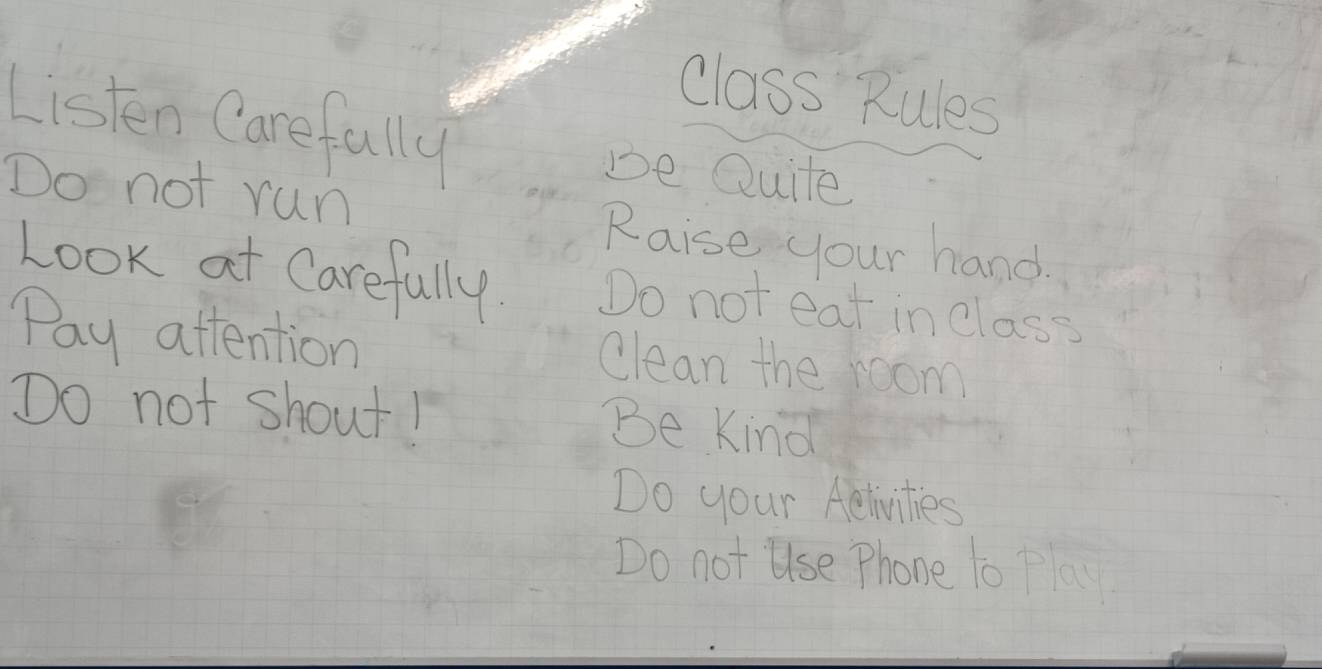 Listen Carefully
Do not run
Look at Carefully.
Pay attention
Do not shout!
Class Rules
Be Quite
Raise your hand.
Do not eat in Class
Clean the room
Be Kind
Do your Activities
Do not Use Phone to Play.